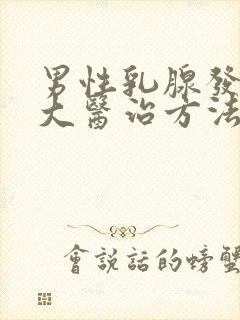 男性乳腺發
大醫治方法
會說話的螃蟹